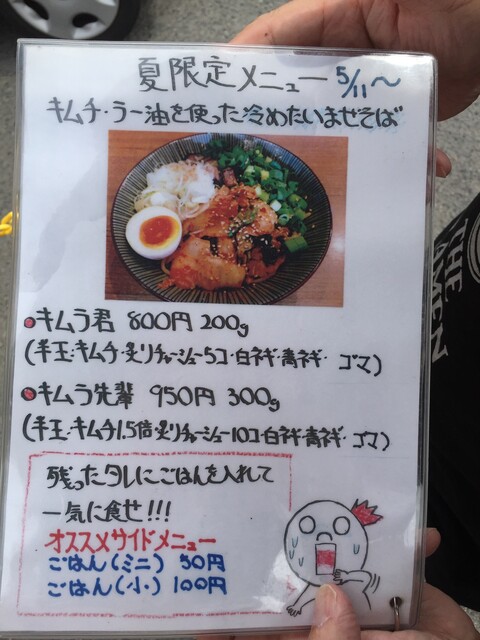 夏限定メニュー 5/11〜
キムチ・ラー油を使った冷めたいまぜそば
キムラ君 800円 200g
(半玉・キムチ・炙りチャーシュー5コ・白ネギ・青ネギ・ゴマ)
キムラ先輩 950円 300g
(半玉・キムチ1.5倍・炙りチャーシュー10コ・白ネギ・青ネギ・ゴマ)
残ったタレにごはんを入れて
一気に食せ!!!
オススメサイドメニュー
ごはん(ミニ) 50円
ごはん(小) 100円
THE